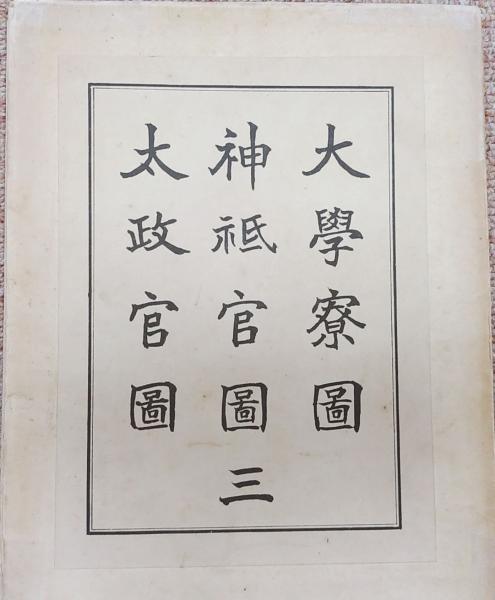 大學寮圖
神祗官圖三
太政官圖